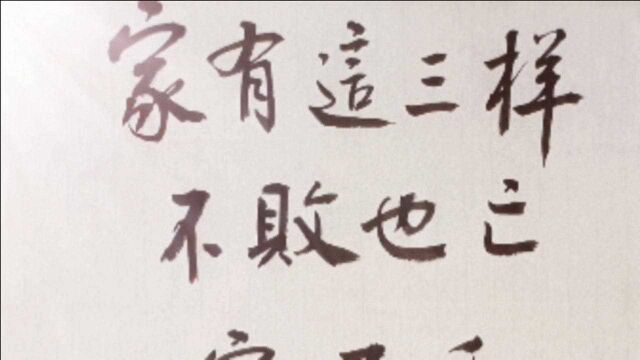 家有這三样
不敗也亡